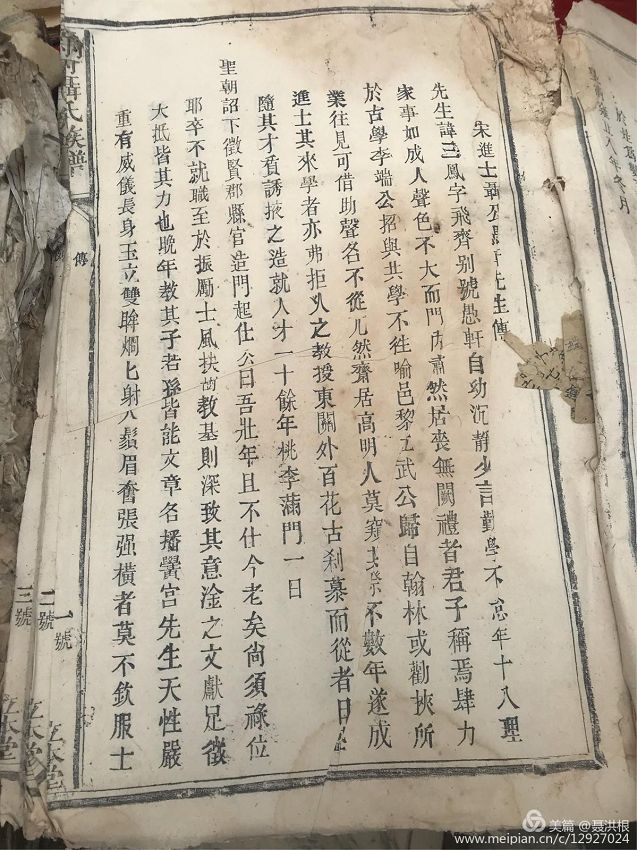 宋進士聶公愚軒先生傳
先生諱三鳳字飛齊别號愚軒自幼沉靜少言勤學不怠年十八理
家事如成人聲色不大而門內肅然居喪無闕禮者君子稱焉肆力
於古學李端公招與共學不往喻邑黎工武公歸自翰林或勸挾所
業往見可借助聲名不從兀然齋居高明人莫窺其際不數年遂成
進士其來學者亦弗拒人之教授東關外百花古剎慕而從者日
隨其才質誘掖之造就人才一十餘年桃李滿門一日
聖朝詔下徵賢郡縣官造門起仕公曰吾壯年且不仕今老矣尚須祿位
耶卒不就職至於振勵士風扶樹教基則深致其意淦之文獻足徵
大抵皆其力也晚年教其子若孫皆能文章名播黌宮先生天性嚴
重有威儀長身玉立雙眸爛匕射人鬚眉奮張强橫者莫不欽服士
氏族譜
傳
一號
二號
三號
立本堂
美篇 @聶洪根
www.meipian.cn/c/12927024